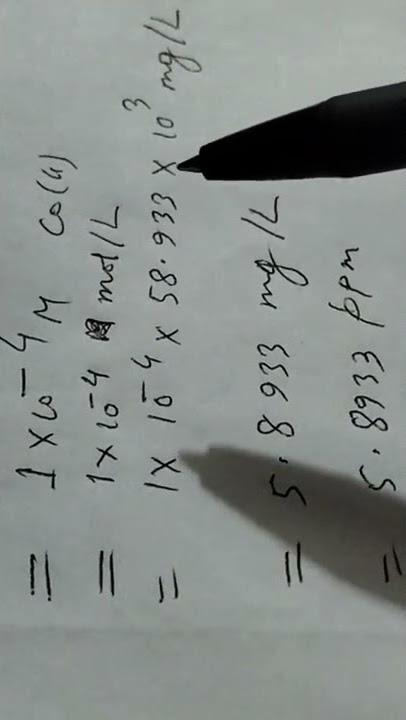 = 1 x 10⁻⁴ M Co(II)
= 1 x 10⁻⁴ mol/L
= 1x 10⁻⁴ x 58.933 x 10³ mg/L
= 5.8933 mg/L
= 5.8933 ppm